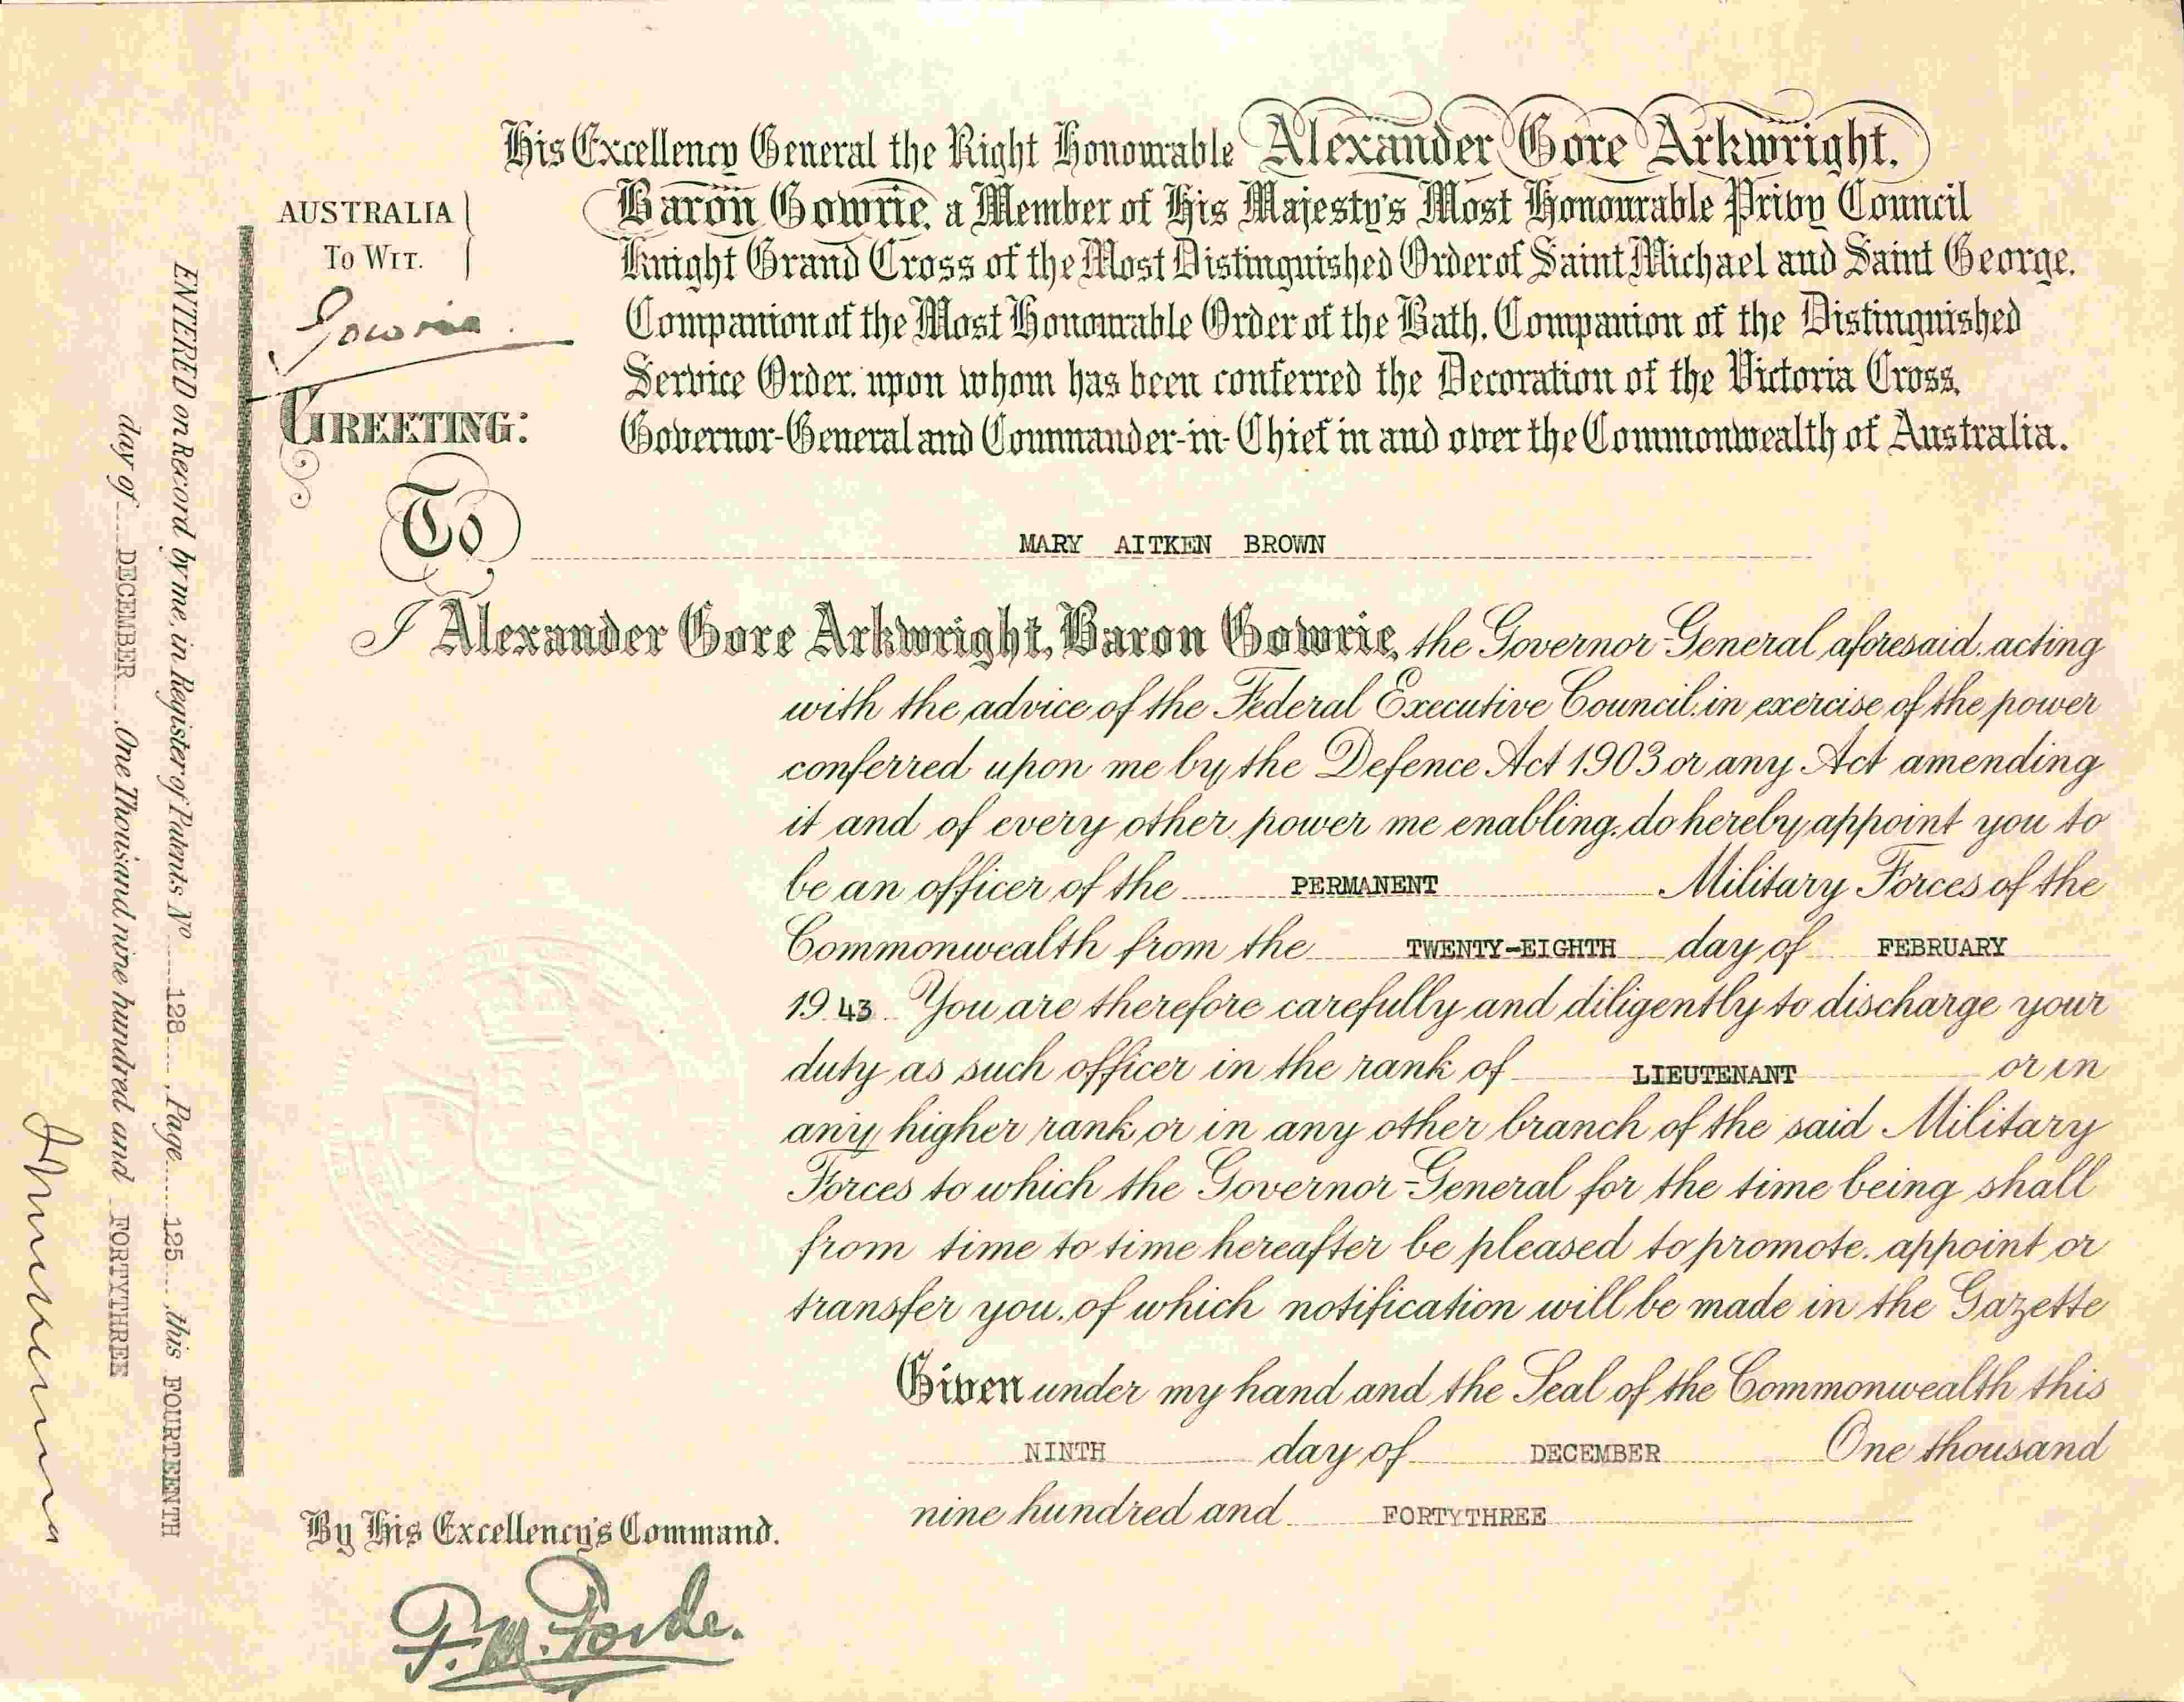 His Excellency General the Right Honourable Alexander Gore Arkwright,
Baron Gowrie, a Member of His Majesty's Most Honourable Privy Council
Knight Grand Cross of the Most Distinguished Order of Saint Michael and Saint George,
Companion of the Most Honourable Order of the Bath, Companion of the Distinguished
Service Order, upon whom has been conferred the Decoration of the Victoria Cross,
Governor-General and Commander-in-Chief in and over the Commonwealth of Australia.
AUSTRALIA
TO WIT.
Gowrie.
GREETING:
To MARY AITKEN BROWN
I Alexander Gore Arkwright, Baron Gowrie, the Governor-General aforesaid, acting
with the advice of the Federal Executive Council, in exercise of the power
conferred upon me by the Defence Act 1903 or any Act amending
it and of every other power me enabling, do hereby appoint you to
be an officer of the PERMANENT Military Forces of the
Commonwealth from the TWENTY-EIGHTH day of FEBRUARY
1943 You are therefore carefully and diligently to discharge your
duty as such officer in the rank of LIEUTENANT or in
any higher rank or in any other branch of the said Military
Forces to which the Governor-General for the time being shall
from time to time hereafter be pleased to promote, appoint or
transfer you, of which notification will be made in the Gazette
Given under my hand and the Seal of the Commonwealth this
NINTH day of DECEMBER One thousand
nine hundred and FORTYTHREE
By His Excellency's Command.
F.M. Forde.
ENTERED on Record by me, in Register of Patents No 128, Page 125, this FOURTEENTH
day of DECEMBER One Thousand nine hundred and FORTYTHREE